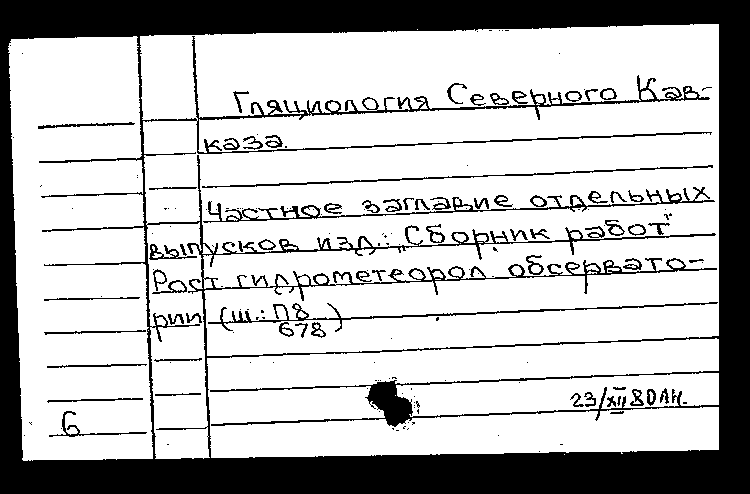 Гляциология Северного Кав-
каза.
Частное заглавие отдельных
выпусков изд.: „Сборник работ"
Рост. гидрометеорол. обсервато-
рии (ш.: П8
678)
23/XII 80 ЛН.
6